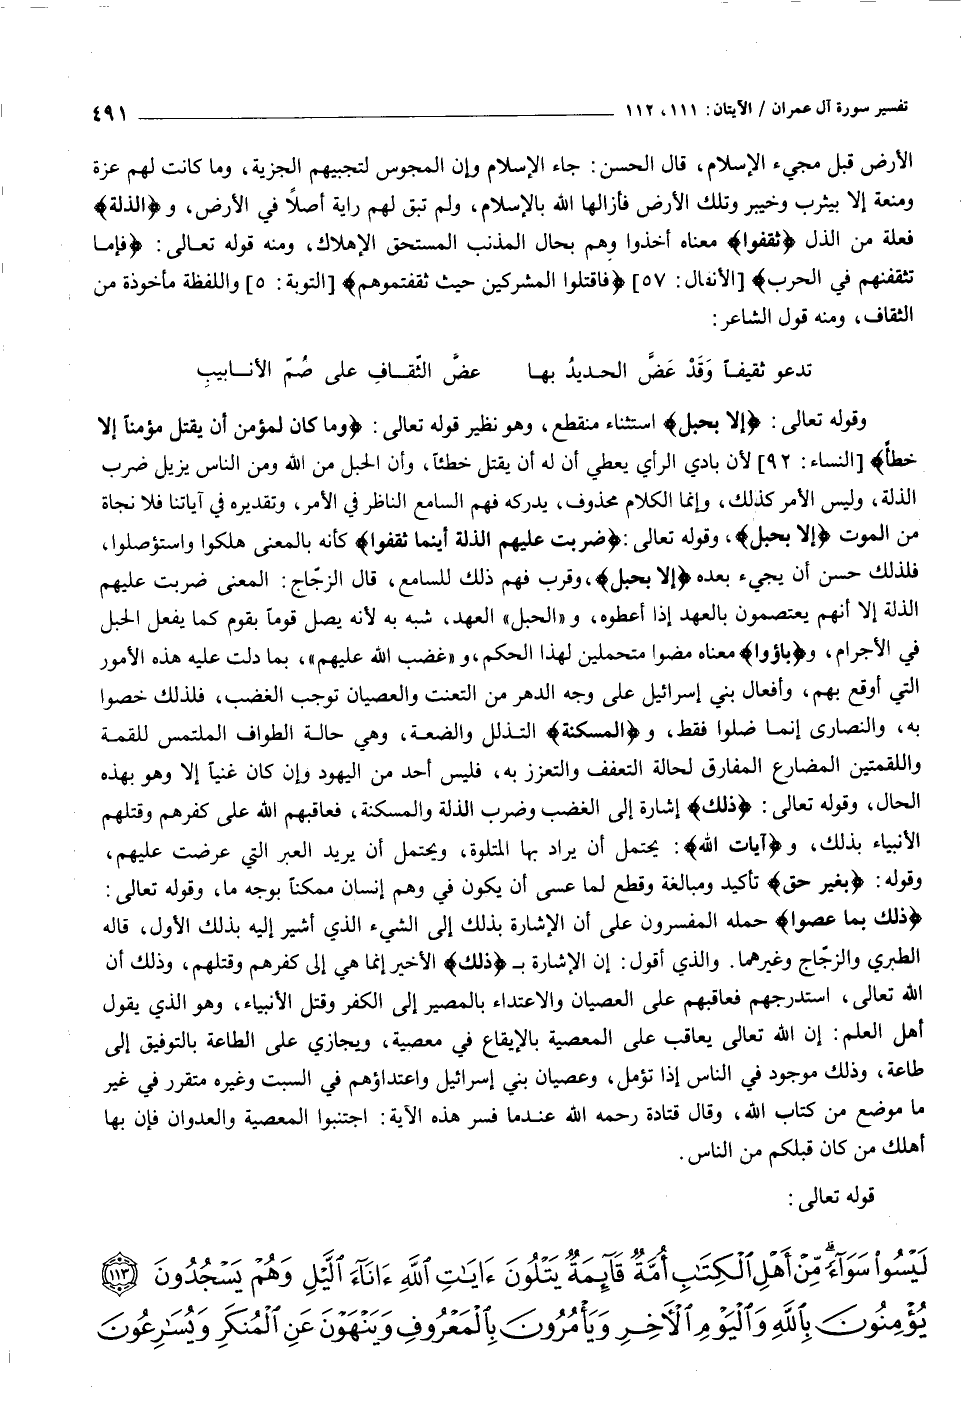 تفسير سورة آل عمران / الآيتان: ١١١، ١١٢ ٤٩١
الأرض قبل مجيء الإسلام، قال الحسن: جاء الإسلام وإن المجوس لتجبيهم الجزية، وما كانت لهم عزة
ومنعة إلا بيثرب وخيبر وتلك الأرض فأزالها الله بالإسلام، ولم تبق لهم راية أصلاً في الأرض، و ﴿الذلة﴾
فعلة من الذل ﴿ثقفوا﴾ معناه أخذوا وهم بحال المذنب المستحق الإهلاك، ومنه قوله تعالى: ﴿فإما
تثقفنهم في الحرب﴾ [الأنفال: ٥٧] ﴿فاقتلوا المشركين حيث ثقفتموهم﴾ [التوبة: ٥] واللفظة مأخوذة من
الثقاف، ومنه قول الشاعر:
تدعو ثقيفاً وَقَدْ عَضَّ الحديدُ بها عضَّ الثّقافِ على صُمّ الأنابيبِ
وقوله تعالى: ﴿إلا بحبل﴾ استثناء منقطع، وهو نظير قوله تعالى: ﴿وما كان لمؤمن أن يقتل مؤمناً إلا
خطأً﴾ [النساء: ٩٢] لأن بادي الرأي يعطي أن له أن يقتل خطئاً، وأن الحبل من الله ومن الناس يزيل ضرب
الذلة، وليس الأمر كذلك، وإنما الكلام محذوف، يدركه فهم السامع الناظر في الأمر، وتقديره في آياتنا فلا نجاة
من الموت ﴿إلا بحبل﴾، وقوله تعالى: ﴿ضربت عليهم الذلة أينما ثقفوا﴾ كأنه بالمعنى هلكوا واستؤصلوا،
فلذلك حسن أن يجيء بعده ﴿إلا بحبل﴾، وقرب فهم ذلك للسامع، قال الزجّاج: المعنى ضربت عليهم
الذلة إلا أنهم يعتصمون بالعهد إذا أعطوه، و «الحبل» العهد، شبه به لأنه يصل قوماً بقوم كما يفعل الحبل
في الأجرام، و﴿باؤوا﴾ معناه مضوا متحملين لهذا الحكم، و «غضب الله عليهم»، بما دلت عليه هذه الأمور
التي أوقع بهم، وأفعال بني إسرائيل على وجه الدهر من التعنت والعصيان توجب الغضب، فلذلك خصوا
به، والنصارى إنما ضلوا فقط، و ﴿المسكنة﴾ التذلل والضعة، وهي حالة الطواف الملتمس للقمة
واللقمتين المضارع المفارق لحالة التعفف والتعزز به، فليس أحد من اليهود وإن كان غنياً إلا وهو بهذه
الحال، وقوله تعالى: ﴿ذلك﴾ إشارة إلى الغضب وضرب الذلة والمسكنة، فعاقبهم الله على كفرهم وقتلهم
الأنبياء بذلك، و ﴿آيات الله﴾: يحتمل أن يراد بها المتلوة، ويحتمل أن يريد العبر التي عرضت عليهم،
وقوله: ﴿بغير حق﴾ تأكيد ومبالغة وقطع لما عسى أن يكون في وهم إنسان ممكناً بوجه ما، وقوله تعالى:
﴿ذلك بما عصوا﴾ حمله المفسرون على أن الإشارة بذلك إلى الشيء الذي أشير إليه بذلك الأول، قاله
الطبري والزجّاج وغيرهما. والذي أقول: إن الإشارة بـ ﴿ذلك﴾ الأخير إنما هي إلى كفرهم وقتلهم، وذلك أن
الله تعالى، استدرجهم فعاقبهم على العصيان والاعتداء بالمصير إلى الكفر وقتل الأنبياء، وهو الذي يقول
أهل العلم: إن الله تعالى يعاقب على المعصية بالإيقاع في معصية، ويجازي على الطاعة بالتوفيق إلى
طاعة، وذلك موجود في الناس إذا تؤمل، وعصيان بني إسرائيل واعتداؤهم في السبت وغيره متقرر في غير
ما موضع من كتاب الله، وقال قتادة رحمه الله عندما فسر هذه الآية: اجتنبوا المعصية والعدوان فإن بها
أهلك من كان قبلكم من الناس.
قوله تعالى:
لَيْسُوا۟ سَوَآءً ۗ مِّنْ أَهْلِ ٱلْكِتَٰبِ أُمَّةٌ قَآئِمَةٌ يَتْلُونَ ءَايَٰتِ ٱللَّهِ ءَانَآءَ ٱلَّيْلِ وَهُمْ يَسْجُدُونَ ١١٣
يُؤْمِنُونَ بِٱللَّهِ وَٱلْيَوْمِ ٱلْءَاخِرِ وَيَأْمُرُونَ بِٱلْمَعْرُوفِ وَيَنْهَوْنَ عَنِ ٱلْمُنكَرِ وَيُسَٰرِعُونَ